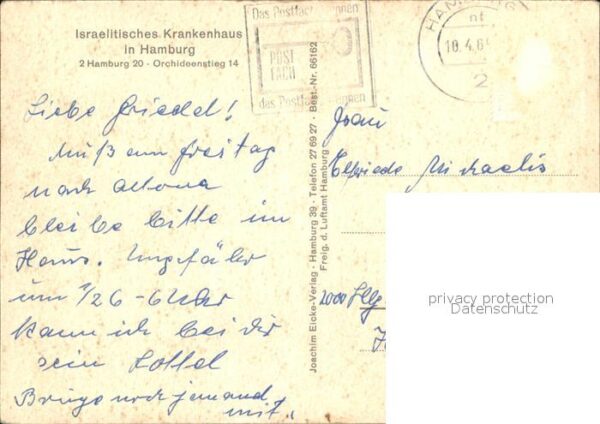 Israelitisches Krankenhaus
in Hamburg
2 Hamburg 20 - Orchideenstieg 14
Liebe Friedel!
Muß am Freitag
nach Altona
bleibe bitte im
Haus. Ungefähr
um 1/26-6 Uhr
kann ich bei dir
sein Lottel
Bringe noch jemand
mit"
Joachim Eicke-Verlag · Hamburg 39 · Telefon 27 69 27 · Best.-Nr. 66162
Freig. d. Luftamt Hamburg
Das Postfach
POST
FACH
das Postfach
HAMBURG
2
Frau
Elfriede Michaelis
2000 Hbg
privacy protection
Datenschutz